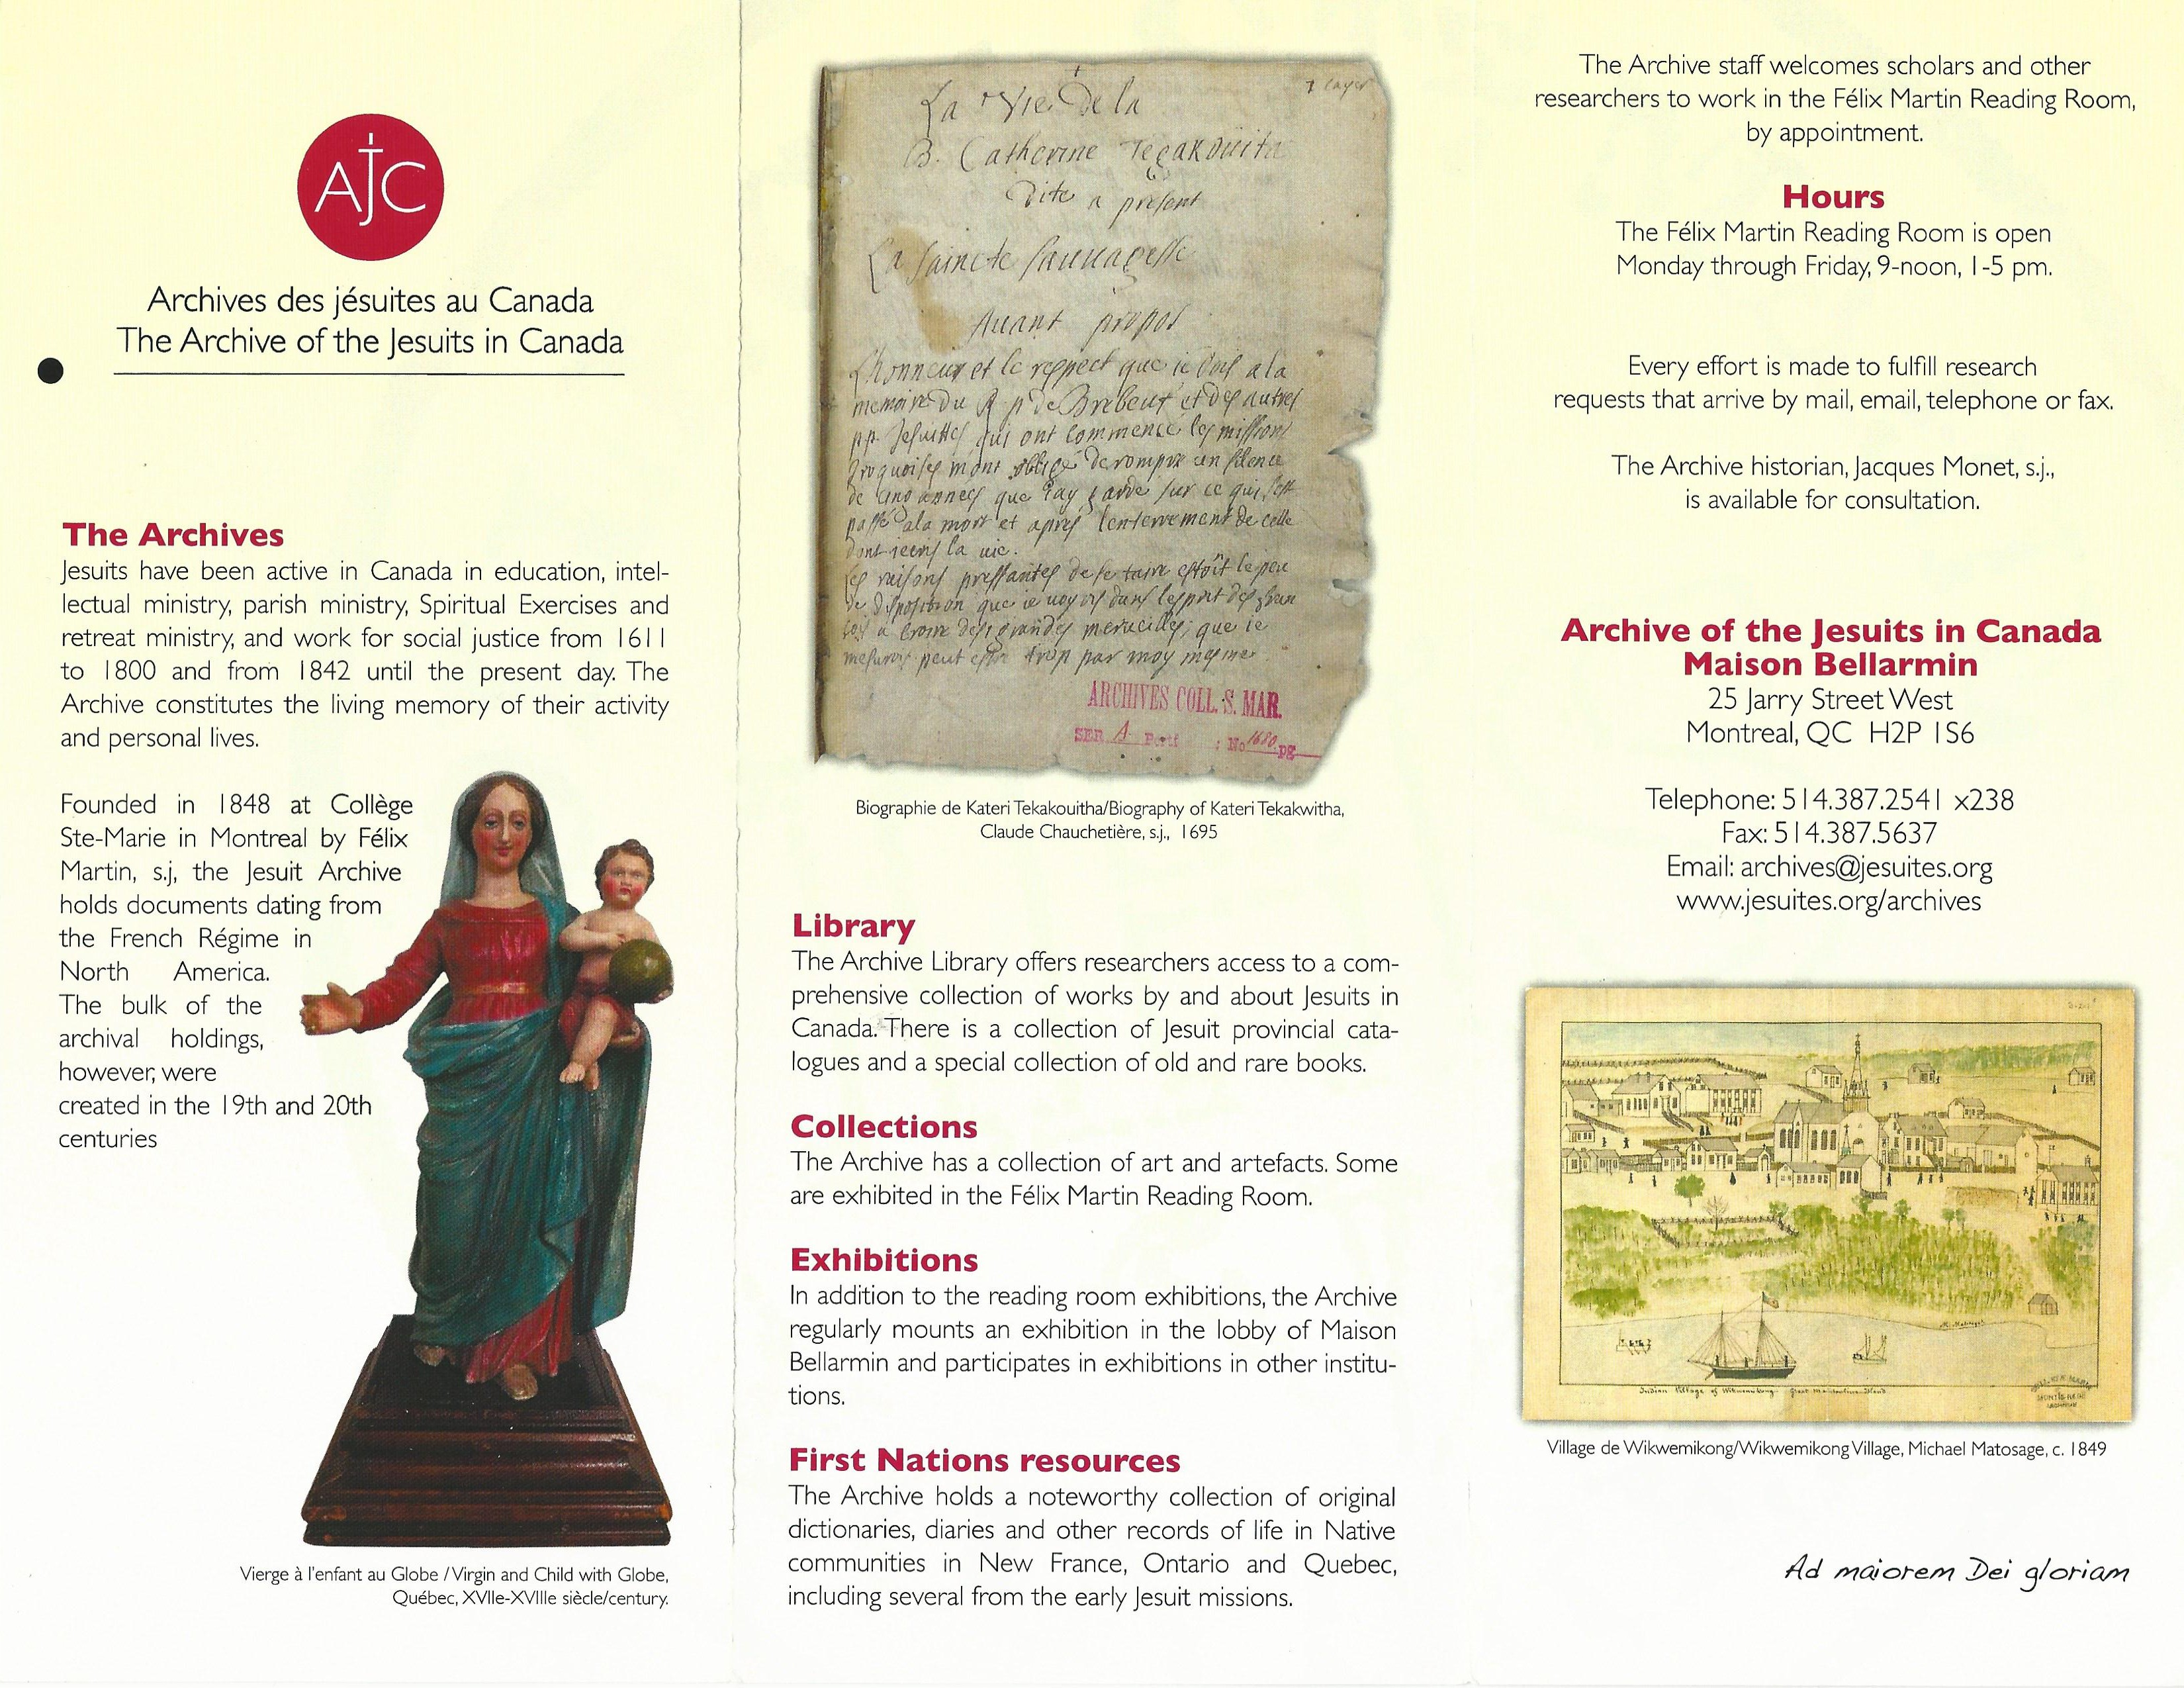 AJC
Archives des jésuites au Canada
The Archive of the Jesuits in Canada
The Archives
Jesuits have been active in Canada in education, intel-
lectual ministry, parish ministry, Spiritual Exercises and
retreat ministry, and work for social justice from 1611
to 1800 and from 1842 until the present day. The
Archive constitutes the living memory of their activity
and personal lives.
Founded in 1848 at Collège
Ste-Marie in Montreal by Félix
Martin, s.j, the Jesuit Archive
holds documents dating from
the French Régime in
North America.
The bulk of the
archival holdings,
however, were
created in the 19th and 20th
centuries
Vierge à l'enfant au Globe / Virgin and Child with Globe,
Québec, XVIIe-XVIIIe siècle/century.
La Vie de la
B. Catherine Tegakouita
Dite a present
La Saincte Sauuagesse
Auant propos
L'honneur et le respect que ie dois a la
memoire du R p de Brebeuf et des autres
pp. Jesuittes qui ont commencé les missions
Iroquoises m'ont obligé de rompre un silence
de cinq années que j'ay gardé sur ce qui s'est
passé a la mort et aprés l'enterrement de celle
dont j'ecris la uie.
les raisons pressantes de se taire estoit le peu
de disposition que ie uoyois dans l'esprit des
a croire des grandes merueilles, que ie
mesurois peut estre trop par moy mesme.
ARCHIVES COLL. S. MAR.
SER A Portf : No 1680 pg
Biographie de Kateri Tekakouitha/Biography of Kateri Tekakwitha,
Claude Chauchetière, s.j., 1695
Library
The Archive Library offers researchers access to a com-
prehensive collection of works by and about Jesuits in
Canada. There is a collection of Jesuit provincial cata-
logues and a special collection of old and rare books.
Collections
The Archive has a collection of art and artefacts. Some
are exhibited in the Félix Martin Reading Room.
Exhibitions
In addition to the reading room exhibitions, the Archive
regularly mounts an exhibition in the lobby of Maison
Bellarmin and participates in exhibitions in other institu-
tions.
First Nations resources
The Archive holds a noteworthy collection of original
dictionaries, diaries and other records of life in Native
communities in New France, Ontario and Quebec,
including several from the early Jesuit missions.
The Archive staff welcomes scholars and other
researchers to work in the Félix Martin Reading Room,
by appointment.
Hours
The Félix Martin Reading Room is open
Monday through Friday, 9-noon, 1-5 pm.
Every effort is made to fulfill research
requests that arrive by mail, email, telephone or fax.
The Archive historian, Jacques Monet, s.j.,
is available for consultation.
Archive of the Jesuits in Canada
Maison Bellarmin
25 Jarry Street West
Montreal, QC H2P 1S6
Telephone: 514.387.2541 x238
Fax: 514.387.5637
Email: archives@jesuites.org
www.jesuites.org/archives
Indian Village of Wikwemikong Great Manitouline Island
Village de Wikwemikong/Wikwemikong Village, Michael Matosage, c. 1849
Ad maiorem Dei gloriam